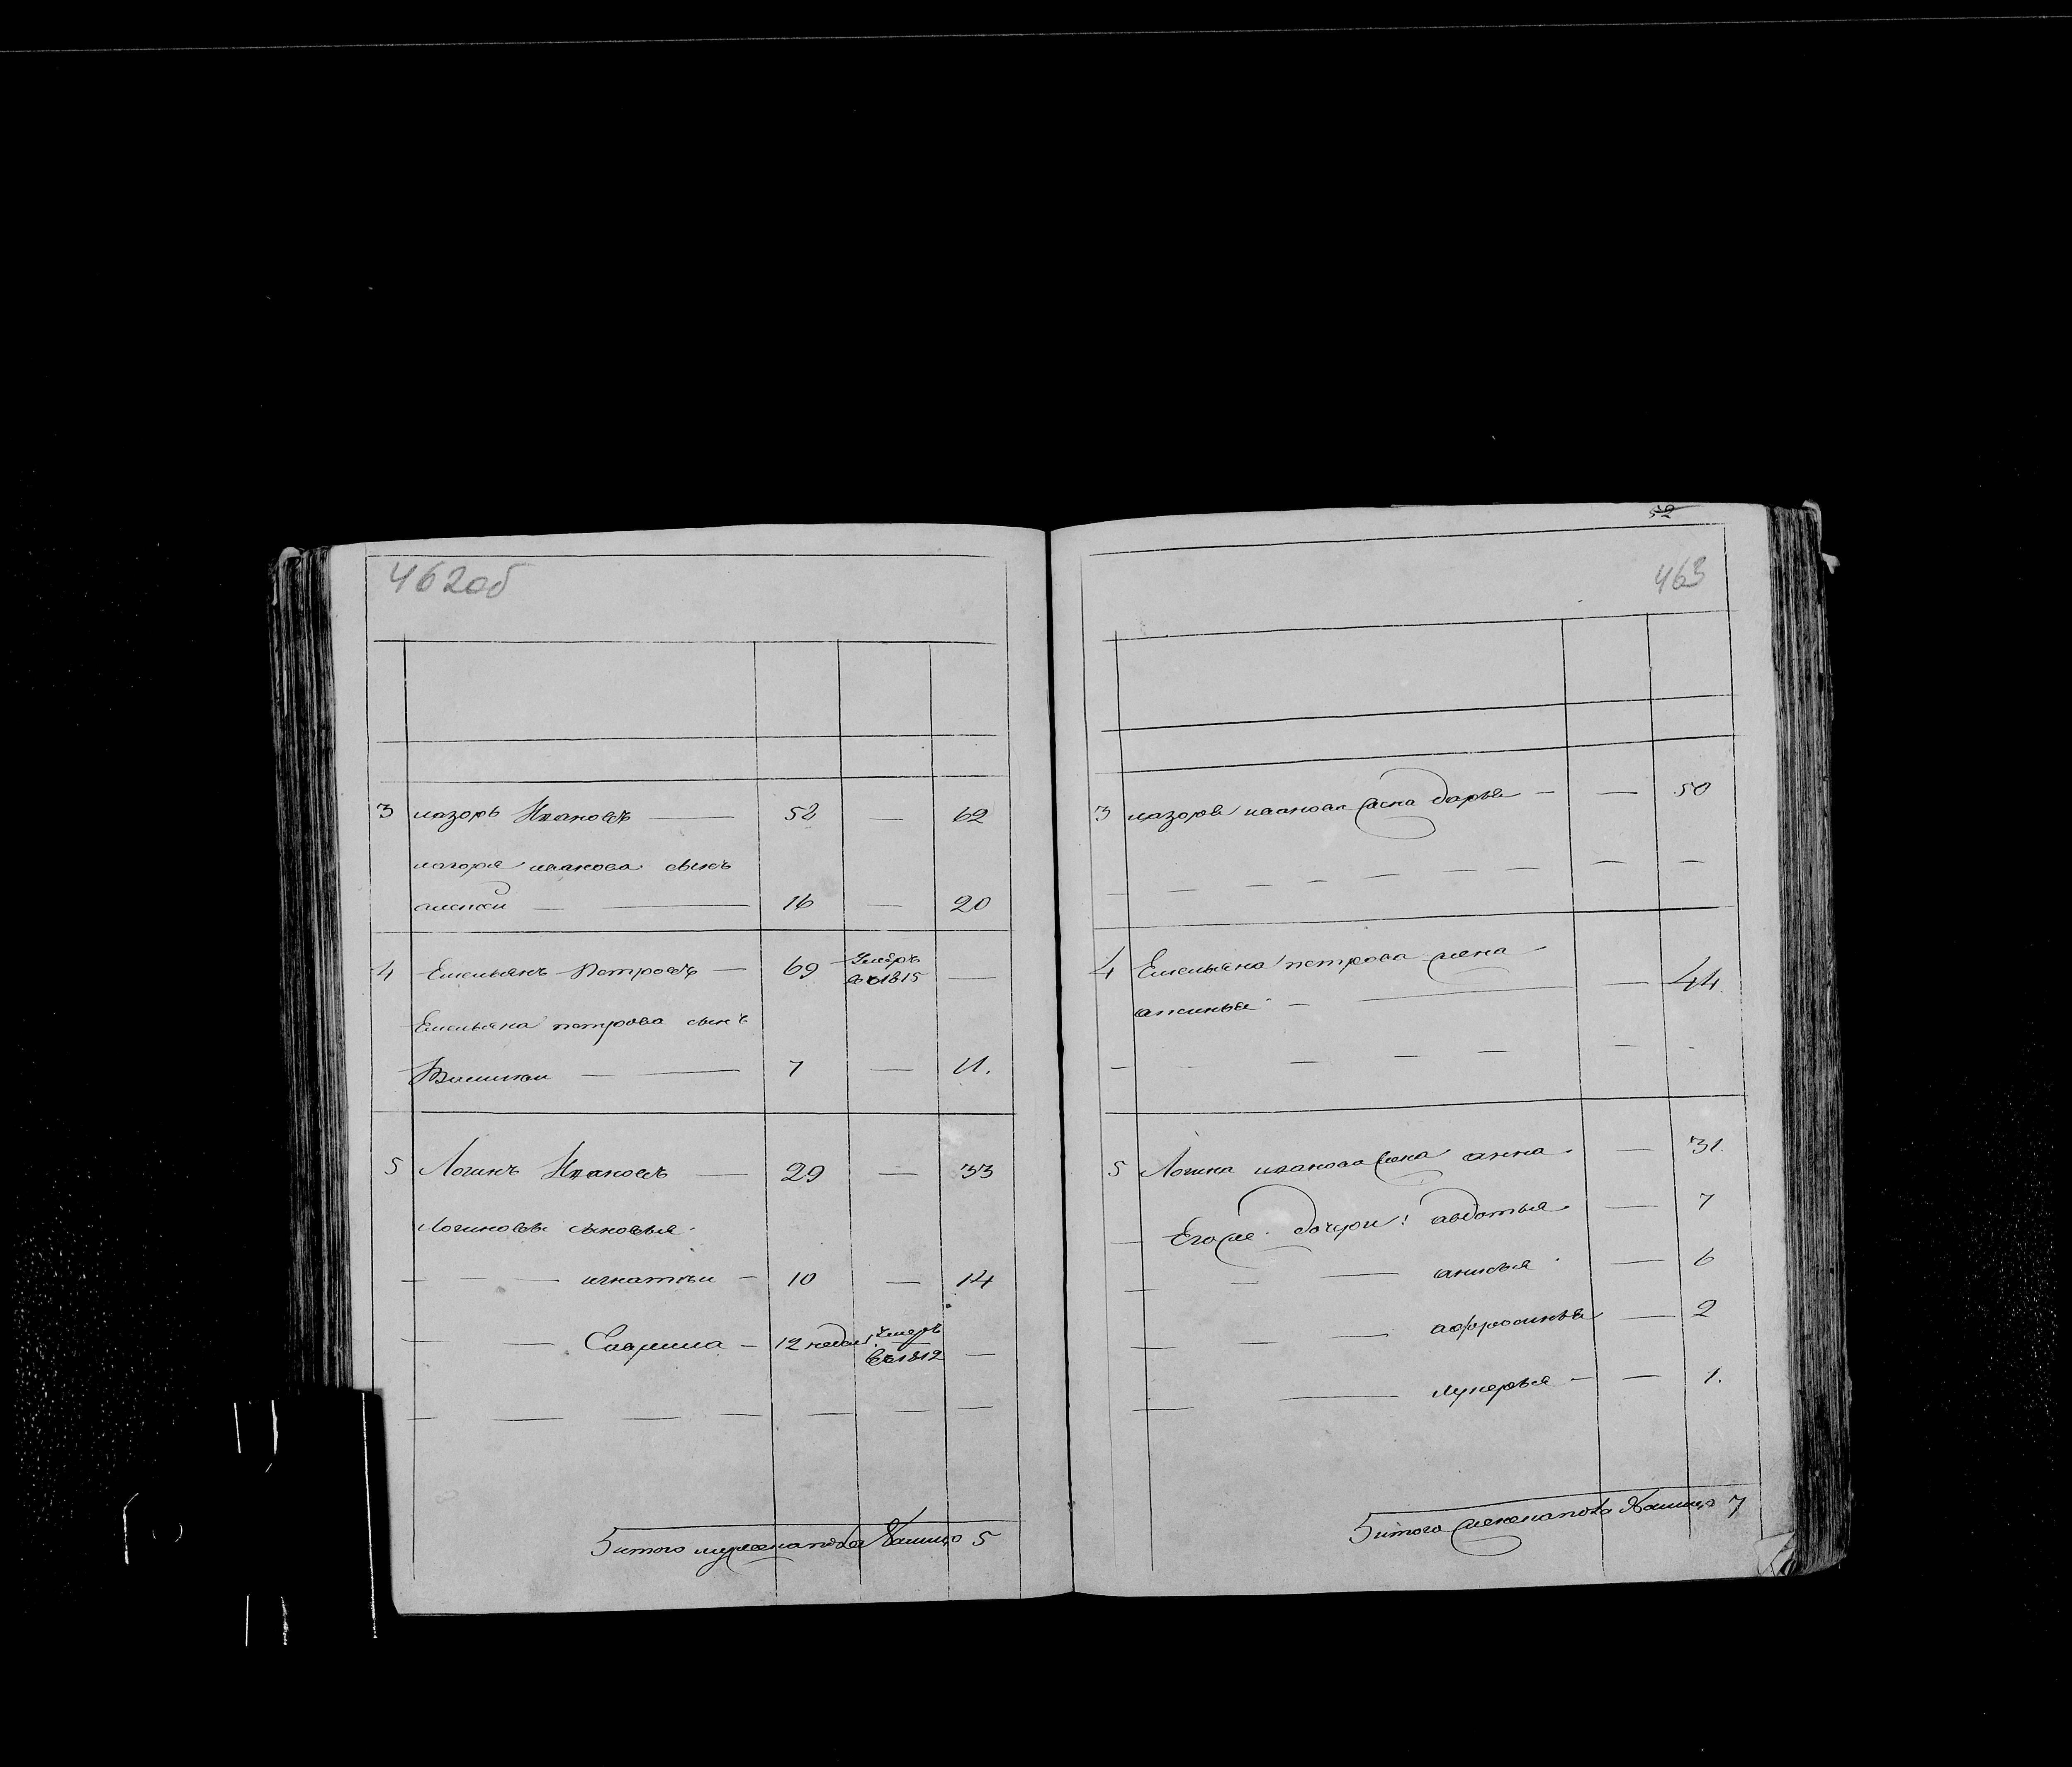 462об
3 лазорь Ивановъ — 52 — 62
лазоря иванова сынъ
алексѣй — — 16 — 20
4 Емельянъ Петровъ — 69 Умеръ въ 1815 —
Емельяна петрова сынъ
Василеи — — 7 — 11.
5 Логинъ Ивановъ — 29 — 33
логиновы сыновья
— — — игнатеи — 10 — 14
— — Гаврила — 12 недѣл. Умеръ въ 1812 —
— — — — — — —
5 итого мужеска пола налицо 5
52
463
3 лазоря иванова жена дарья — — 50
— — — — — — — — —
4 Емельяна петрова жена
аксинья — — — 44
— — — — — -
5 Логина иванова жена анна. — 31.
— Его же дочери: авдотья — 7
— — — анисья — 6
— — — афросинья — 2
— — лукерья — — 1.
5 итого женска пола налицо 7